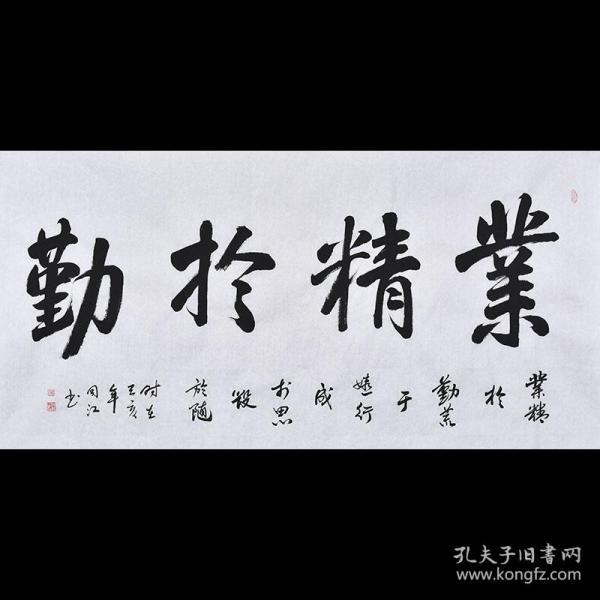 業精於勤
業精
於
勤荒
于
嬉行
成
於思
毁
於隨
时在
己亥
年
同江
书
孔夫子旧书网
www.kongfz.com